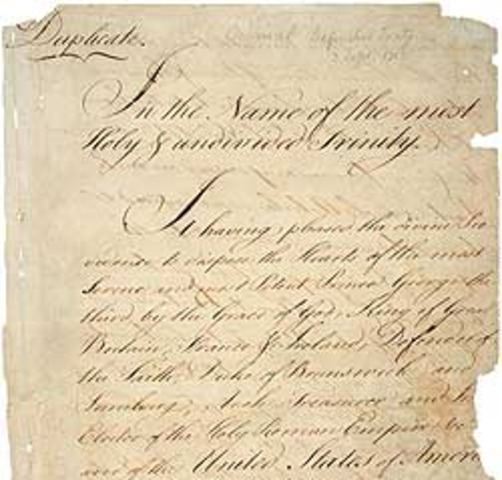 Duplicate.
Original Definitive Treaty
3 Sept. 
In the Name of the most
Holy & undivided Trinity.
It having pleased the divine Pro
vidence to dispose the Hearts of the most
Serene and most Potent Prince George the
third, by the Grace of God, King of Great
Britain, France & Ireland, Defender of
the Faith, Duke of Brunswick and
Lunebourg, Arch Treasurer and
Elector of the Holy Roman Empire &c
and of the United States of Ameri